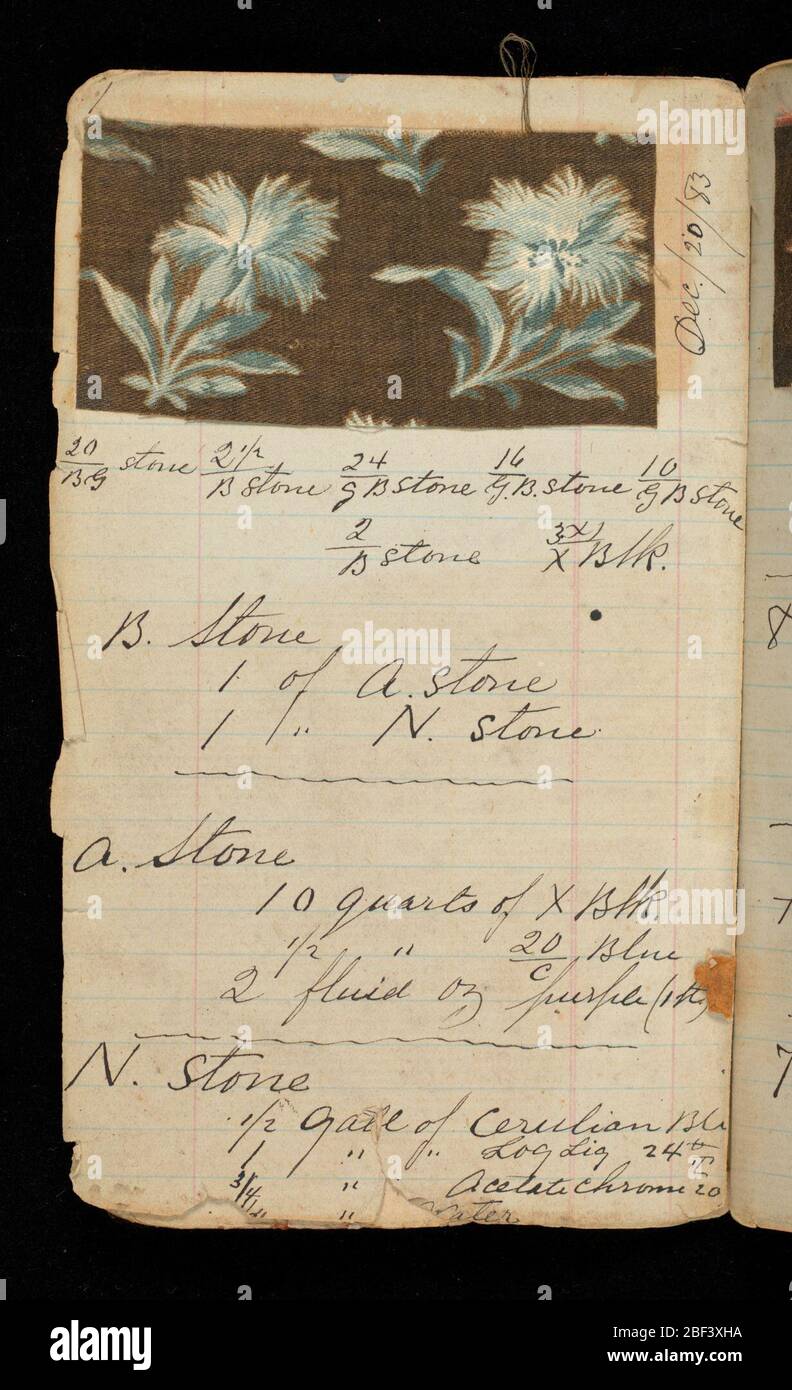 1
Dec./20/83
20/BG stone 2 1/2/B stone 24/G B stone 16/G.B. stone 10/G B stone
2/B stone 3x)/X Blk.
B. Stone
1 of A. stone
1 " N. stone
A. Stone
10 quarts of X Blk.
1/2 " 20/C Blue
2 fluid oz purple (1 lb)
N. Stone
1/2 Gall of Cerulian Blu
1 " " Log Liq 24
3/4 " Acetate chrome 20
" " Water
alamy
Image ID: 2BF3XHA
www.alamy.com